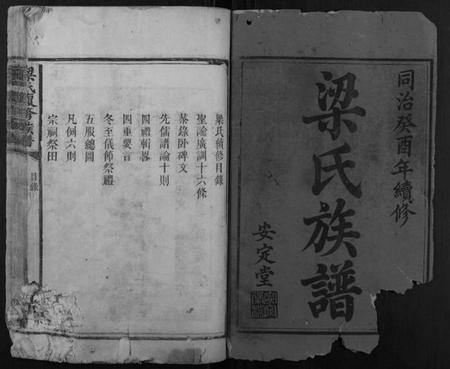 同治癸酉年續修
梁氏族譜
安定堂
梁氏續修目錄
聖諭廣訓十六條
茶錄卧碑文
先儒諸論十則
四禮輯畧
四重要言
冬至儀節祭禮
五服總圖
凡例六則
宗祠祭田
目錄